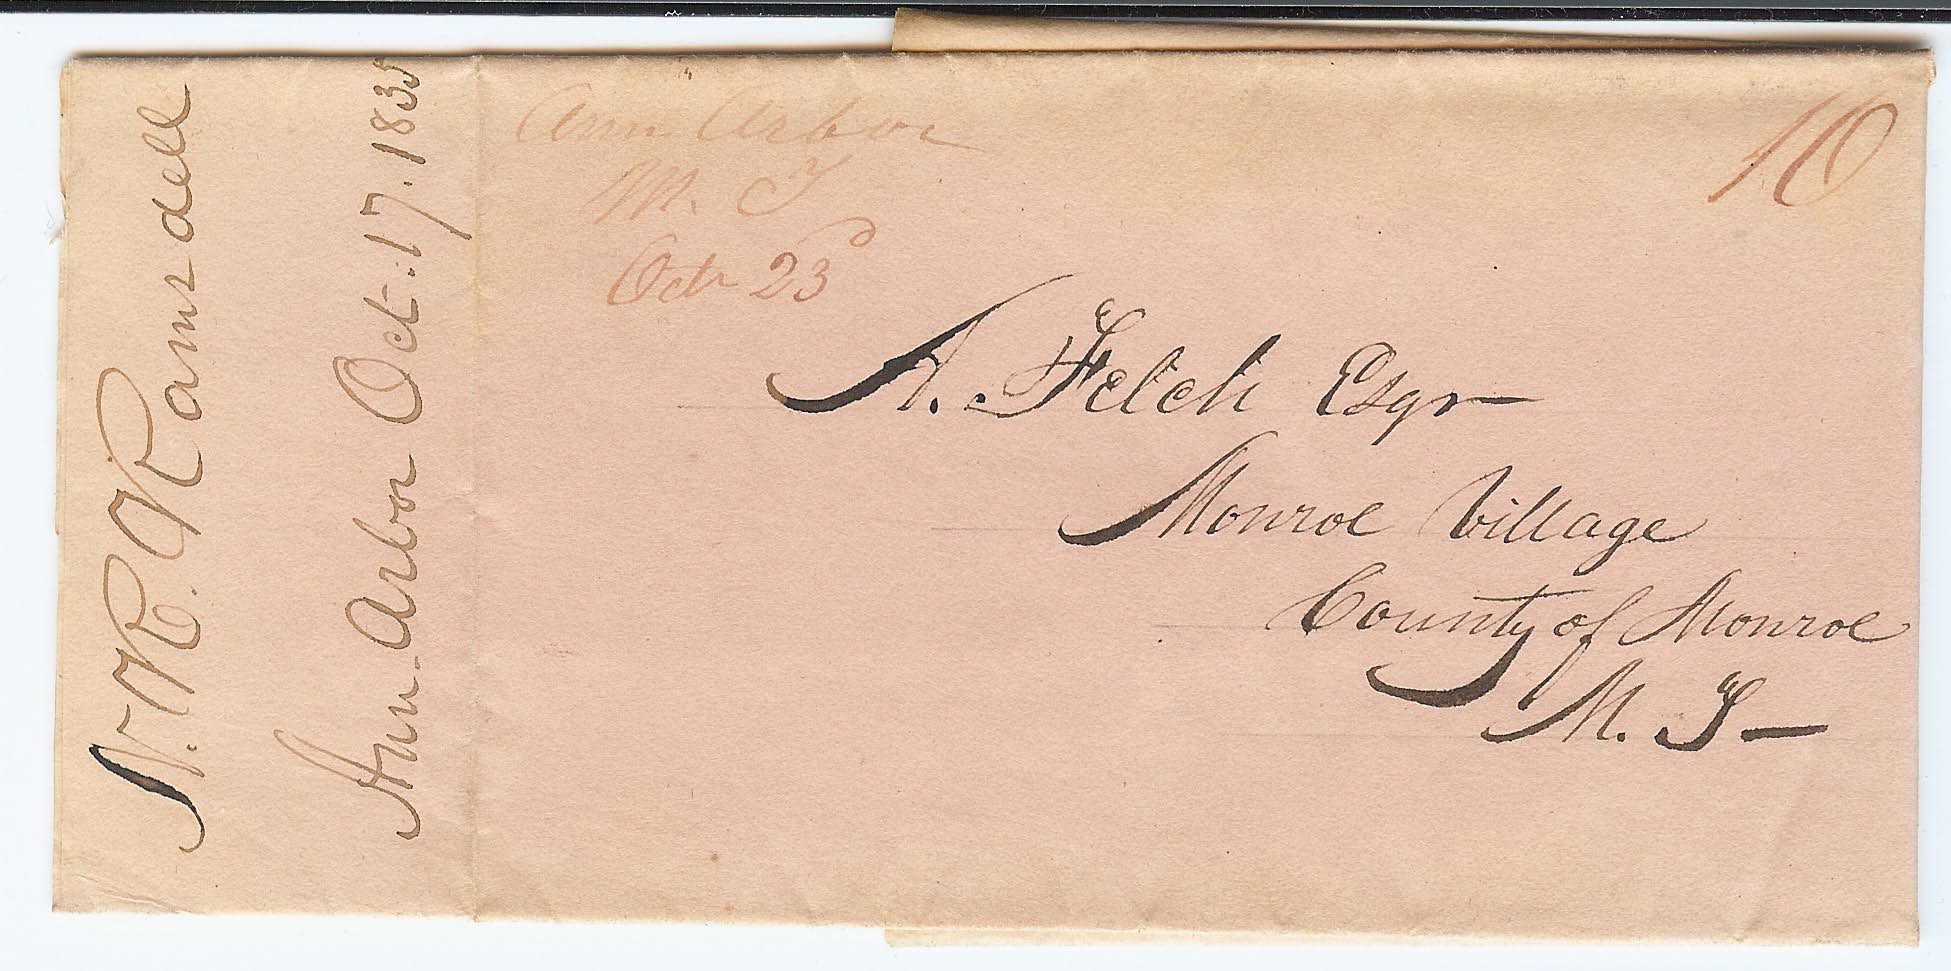 N. R. Ramsdell
Ann-Arbor Oct. 17. 1835
Ann Arbor
M. T
Octr 23
10
A. Felch Esqr
Monroe Village
County of Monroe
M. T